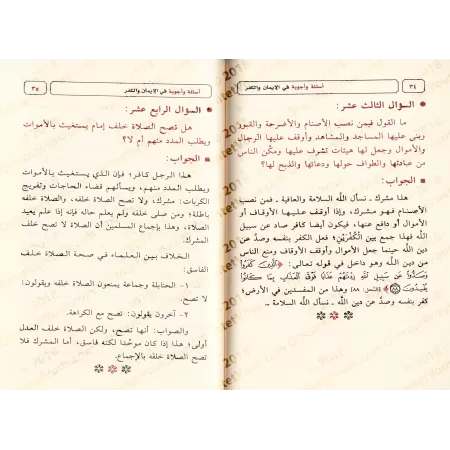 ٣٤
أسئلة وأجوبة في الإيمان والكفر
السؤال الثالث عشر:
ما القول فيمن نصب الأصنام والأضرحة والقبور
وبنى عليها المساجد والمشاهد وأوقف عليها الرجال
والأموال وجعل لها هيئات تشرف عليها ومكّن الناس
من عبادتها والطواف حولها ودعائها والذبح لها؟
الجواب:
هذا مشرك ـ نسأل الله السلامة والعافية ـ فمن نصب
الأصنام فهو مشرك، وإذا أوقف عليها الأوقاف أو
الأموال أو دافع عنها، فيكون أيضا كافر صاد عن سبيل
الله فهذا جمع بين الكُفْرَيْن؛ فعل الكفر بنفسه وصدَّ عن
دين الله حينما جعل الأموال وأوقف الأوقاف لمن يصد
عن دين الله وهو داخل في قوله تعالى: ﴿الَّذِينَ كَفَرُوا
وَصَدُّوا عَن سَبِيلِ اللَّهِ زِدْنَاهُمْ عَذَابًا فَوْقَ الْعَذَابِ بِمَا كَانُوا
يُفْسِدُونَ﴾ [النحل: ٨٨] وهذا من المفسدين في الأرض؛
كفر بنفسه وصدَّ عن دين الله ـ نسأل الله السلامة ـ.
أسئلة وأجوبة في الإيمان والكفر
٣٥
السؤال الرابع عشر:
هل تصح الصلاة خلف إمام يستغيث بالأموات
ويطلب المدد منهم أم لا؟
الجواب:
هذا الرجل كافر؛ فإن الذي يستغيث بالأموات
ويطلب المدد منهم، ويسألهم قضاء الحاجات وتفريج
الكربات: مشرك، ولا تصح الصلاة خلفه، والصلاة خلفه
باطلة؛ ومن صلى خلفه ولم يعلم حاله فإنه إذا علم يعيد
الصلاة، وهذا بإجماع المسلمين أن الصلاة لا تصح خلف
المشرك.
الخلاف بين العلماء في صحة الصلاة خلف
الفاسق:
١ـ الحنابلة وجماعة يمنعون الصلاة خلفه ويقولون:
لا تصح.
٢ـ آخرون يقولون: تصح مع الكراهة.
والصواب: أنها تصح، ولكن الصلاة خلف العدل
أولى؛ هذا إذا كان موحّدا لكنه فاسق، أما المشرك فلا
تصح الصلاة خلفه بالإجماع.